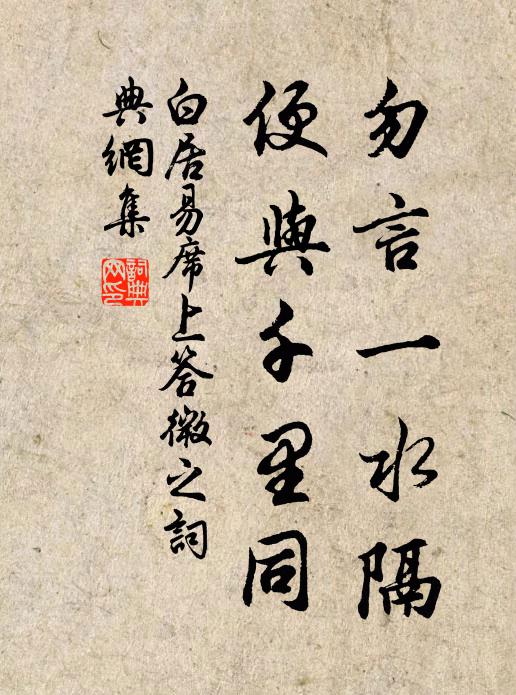 勿言一水隔
便與千里同
白居易席上答微之詞
典網集
詞典网印